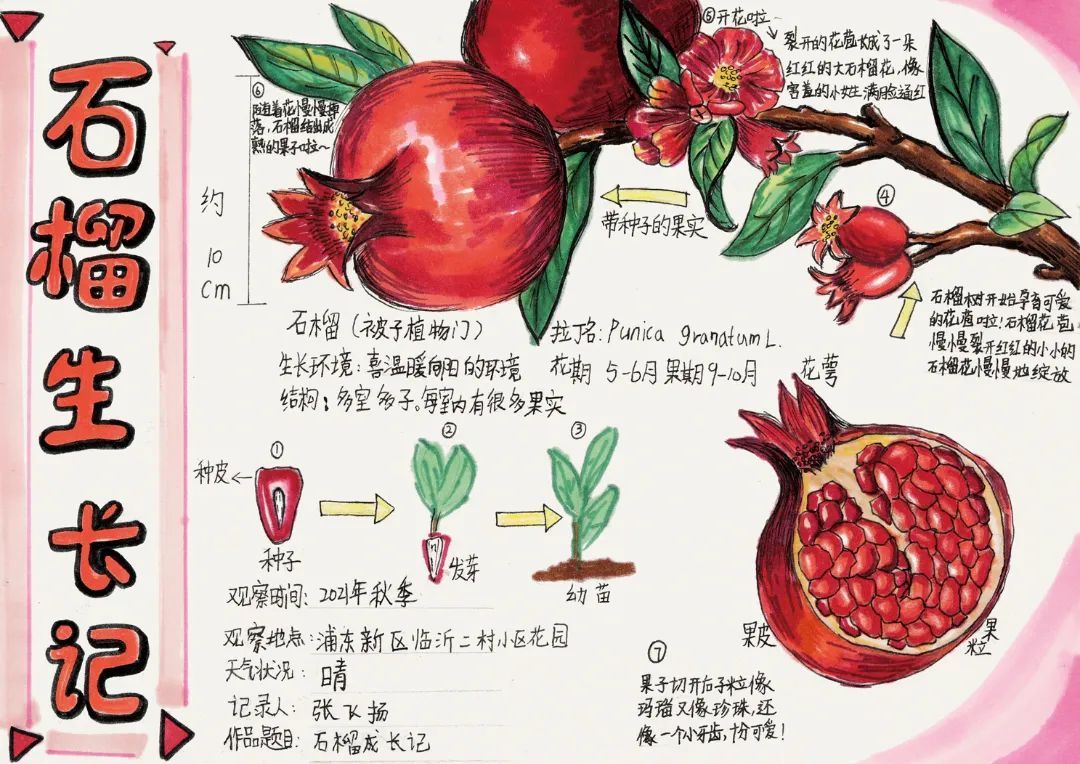 石榴生长记
约
10
cm
⑥
随着花慢慢掉
落,石榴结出成
熟的果子啦~
⑤开花啦~
裂开的花苞长成了一朵
红红的大石榴花,像
害羞的小女生满脸通红
带种子的果实
④
石榴树开始孕育可爱
的花苞啦!石榴花苞
慢慢裂开红红的小小的
石榴花慢慢地绽放
石榴(被子植物门)
拉丁名:Punica granatum L.
生长环境:喜温暖向阳的环境
花期 5-6月 果期9-10月
结构:多室多子。每室内有很多果实
花萼
①
种皮
种子
②
发芽
③
幼苗
果皮
果粒
观察时间:2021年秋季
观察地点:浦东新区临沂二村小区花园
天气状况:晴
记录人:张飞扬
作品题目:石榴成长记
⑦
果子切开后子粒像
玛瑙又像珍珠,还
像一个小牙齿,十分可爱!